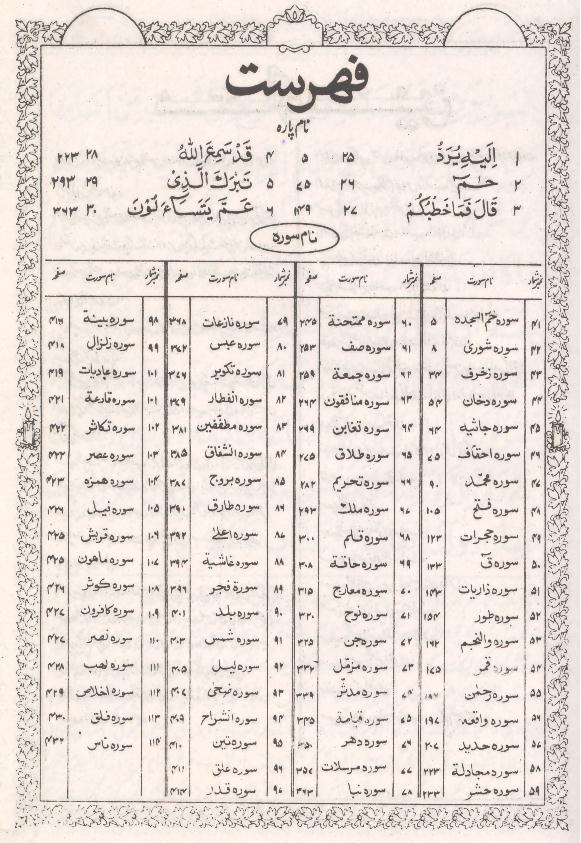 فهرست
نام پارہ
۱ اِلَيْهِ يُرَدُّ ۲۵ ۵ ۴ قَدْ سَمِعَ اللّٰهُ ۲۸ ۲۲۳
۲ حٰمٓ ۲۶ ۷۵ ۵ تَبٰرَكَ الَّذِیْ ۲۹ ۲۹۳
۳ قَالَ فَمَا خَطْبُكُمْ ۲۷ ۱۴۹ ۶ عَمَّ يَتَسَآءَلُوْنَ ۳۰ ۳۶۳
نام سورہ
نمبر شمار نام سورت صفحہ نمبر شمار نام سورت صفحہ نمبر شمار نام سورت صفحہ نمبر شمار نام سورت صفحہ
۴۱ سورہ حٰمٓ السجدہ ۵ ۶۰ سورہ ممتحنة ۲۴۵ ۷۹ سورہ نازعات ۳۶۸ ۹۸ سورہ بینة ۴۱۶
۴۲ سورہ شوریٰ ۸ ۶۱ سورہ صف ۲۵۳ ۸۰ سورہ عبس ۳۷۲ ۹۹ سورہ زلزال ۴۱۸
۴۳ سورہ زخرف ۳۴ ۶۲ سورہ جمعة ۲۵۹ ۸۱ سورہ تکویر ۳۷۶ ۱۰۱ سورہ عادیات ۴۱۹
۴۴ سورہ دخان ۵۴ ۶۳ سورہ منافقون ۲۶۴ ۸۲ سورہ الفطار ۳۷۹ ۱۰۱ سورہ قارعة ۴۲۱
۴۵ سورہ جاثیه ۶۴ ۶۴ سورہ تغابن ۲۶۹ ۸۳ سورہ مطففین ۳۸۱ ۱۰۲ سورہ تکاثر ۴۲۲
۴۶ سورہ احقاف ۷۵ ۶۵ سورہ طلاق ۲۷۵ ۸۴ سورہ الشقاق ۳۸۵ ۱۰۳ سورہ عصر ۴۲۳
۴۷ سورہ محمّد ۹۰ ۶۶ سورہ تحریم ۲۸۲ ۸۵ سورہ بروج ۳۸۷ ۱۰۴ سورہ ہمزہ ۴۲۳
۴۸ سورہ فتح ۱۰۵ ۶۷ سورہ ملک ۲۹۳ ۸۶ سورہ طارق ۳۹۰ ۱۰۵ سورہ فیل ۴۲۴
۴۹ سورہ حجرات ۱۲۳ ۶۸ سورہ قلم ۳۰۰ ۸۷ سورہ اعلیٰ ۳۹۲ ۱۰۶ سورہ قریش ۴۲۵
۵۰ سورہ قٓ ۱۳۳ ۶۹ سورہ حاقة ۳۰۸ ۸۸ سورہ غاشیة ۳۹۴ ۱۰۷ سورہ ماھون ۴۲۵
۵۱ سورہ ذاریات ۱۴۳ ۷۰ سورہ معارج ۳۱۵ ۸۹ سورہ فجر ۳۹۶ ۱۰۸ سورہ کوثر ۴۲۶
۵۲ سورہ طور ۱۵۴ ۷۱ سورہ نوح ۳۲۰ ۹۰ سورہ بلد ۴۰۱ ۱۰۹ سورہ کافرون ۴۲۷
۵۳ سورہ والنجم ۱۶۲ ۷۲ سورہ جن ۳۲۵ ۹۱ سورہ شمس ۴۰۳ ۱۱۰ سورہ نصر ۴۲۷
۵۴ سورہ قمر ۱۷۵ ۷۳ سورہ مزمّل ۳۳۲ ۹۲ سورہ لیل ۴۰۵ ۱۱۱ سورہ لہب ۴۲۸
۵۵ سورہ رحمٰن ۱۸۶ ۷۴ سورہ مدثّر ۳۳۹ ۹۳ سورہ ضحیٰ ۴۰۷ ۱۱۲ سورہ اخلاص ۴۲۹
۵۶ سورہ واقعہ ۱۹۷ ۷۵ سورہ قیامة ۳۴۵ ۹۴ سورہ انشراح ۴۰۹ ۱۱۳ سورہ فلق ۴۳۰
۵۷ سورہ حدید ۲۰۷ ۷۶ سورہ دھر ۳۵۰ ۹۵ سورہ تین ۴۱۰ ۱۱۴ سورہ ناس ۴۳۲
۵۸ سورہ مجادلة ۲۲۳ ۷۷ سورہ مرسلات ۳۵۷ ۹۶ سورہ علق ۴۱۱
۵۹ سورہ حشر ۲۳۳ ۷۸ سورہ نبا ۳۶۳ ۹۷ سورہ قدر ۴۱۴